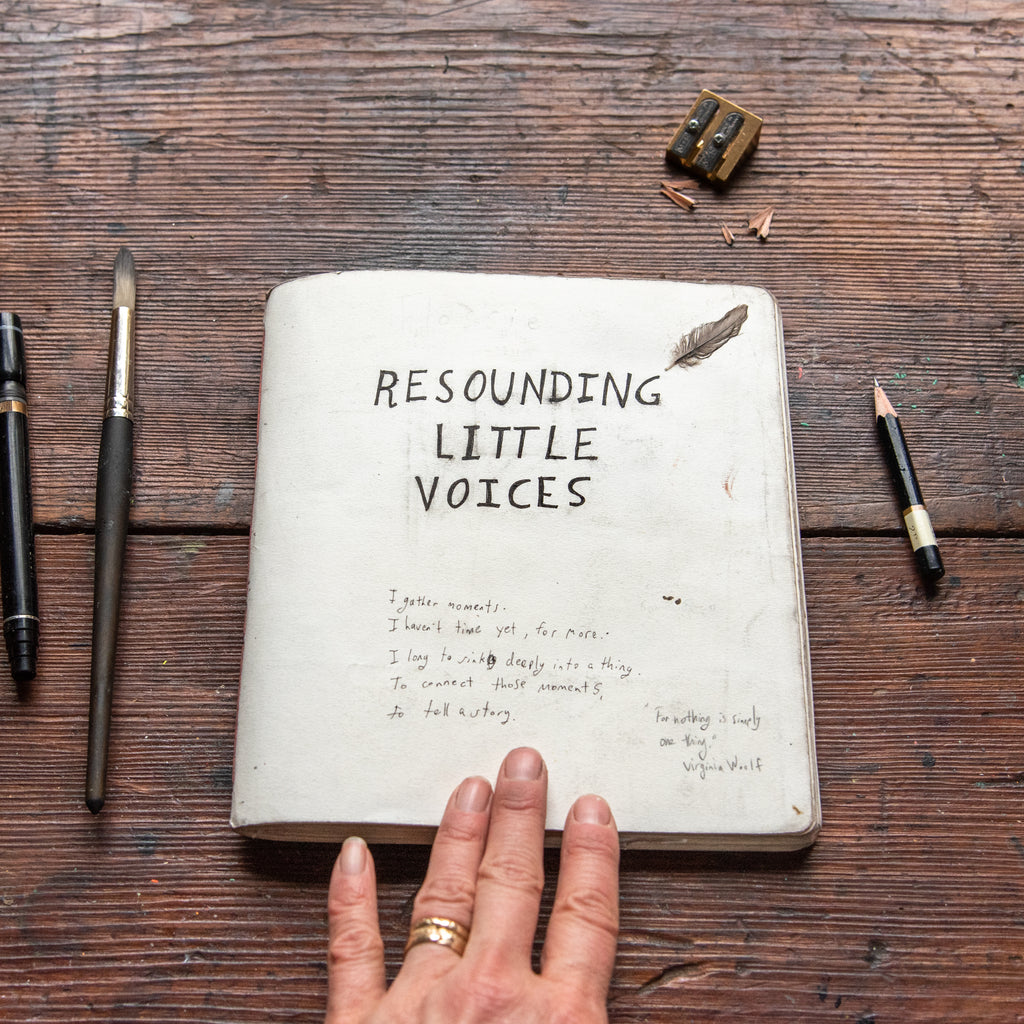 RESOUNDING
LITTLE
VOICES
I gather moments.
I haven't time yet, for more.
I long to sink deeply into a thing.
To connect those moments,
to tell a story.
"For nothing is simply
one thing."
Virginia Woolf